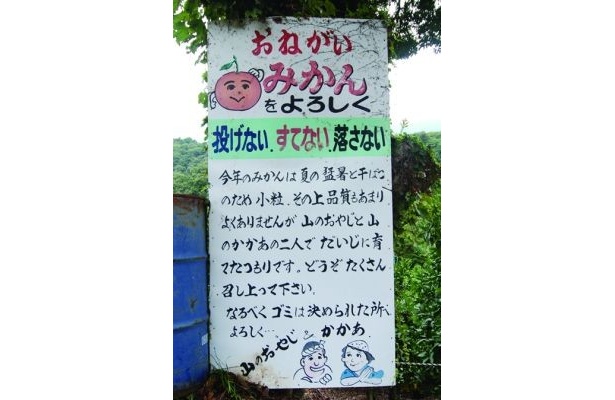 おねがい
みかん
をよろしく
投げない、すてない、落さない
今年のみかんは夏の猛暑と干ばつ
のため小粒、その上品質もあまり
よくありませんが山のおやじと山
のかかあの二人でだいじに育
てたつもりです。どうぞたくさん
召し上って下さい。
なるべくゴミは決められた所へ
よろしく…
山のおやじとかかあ